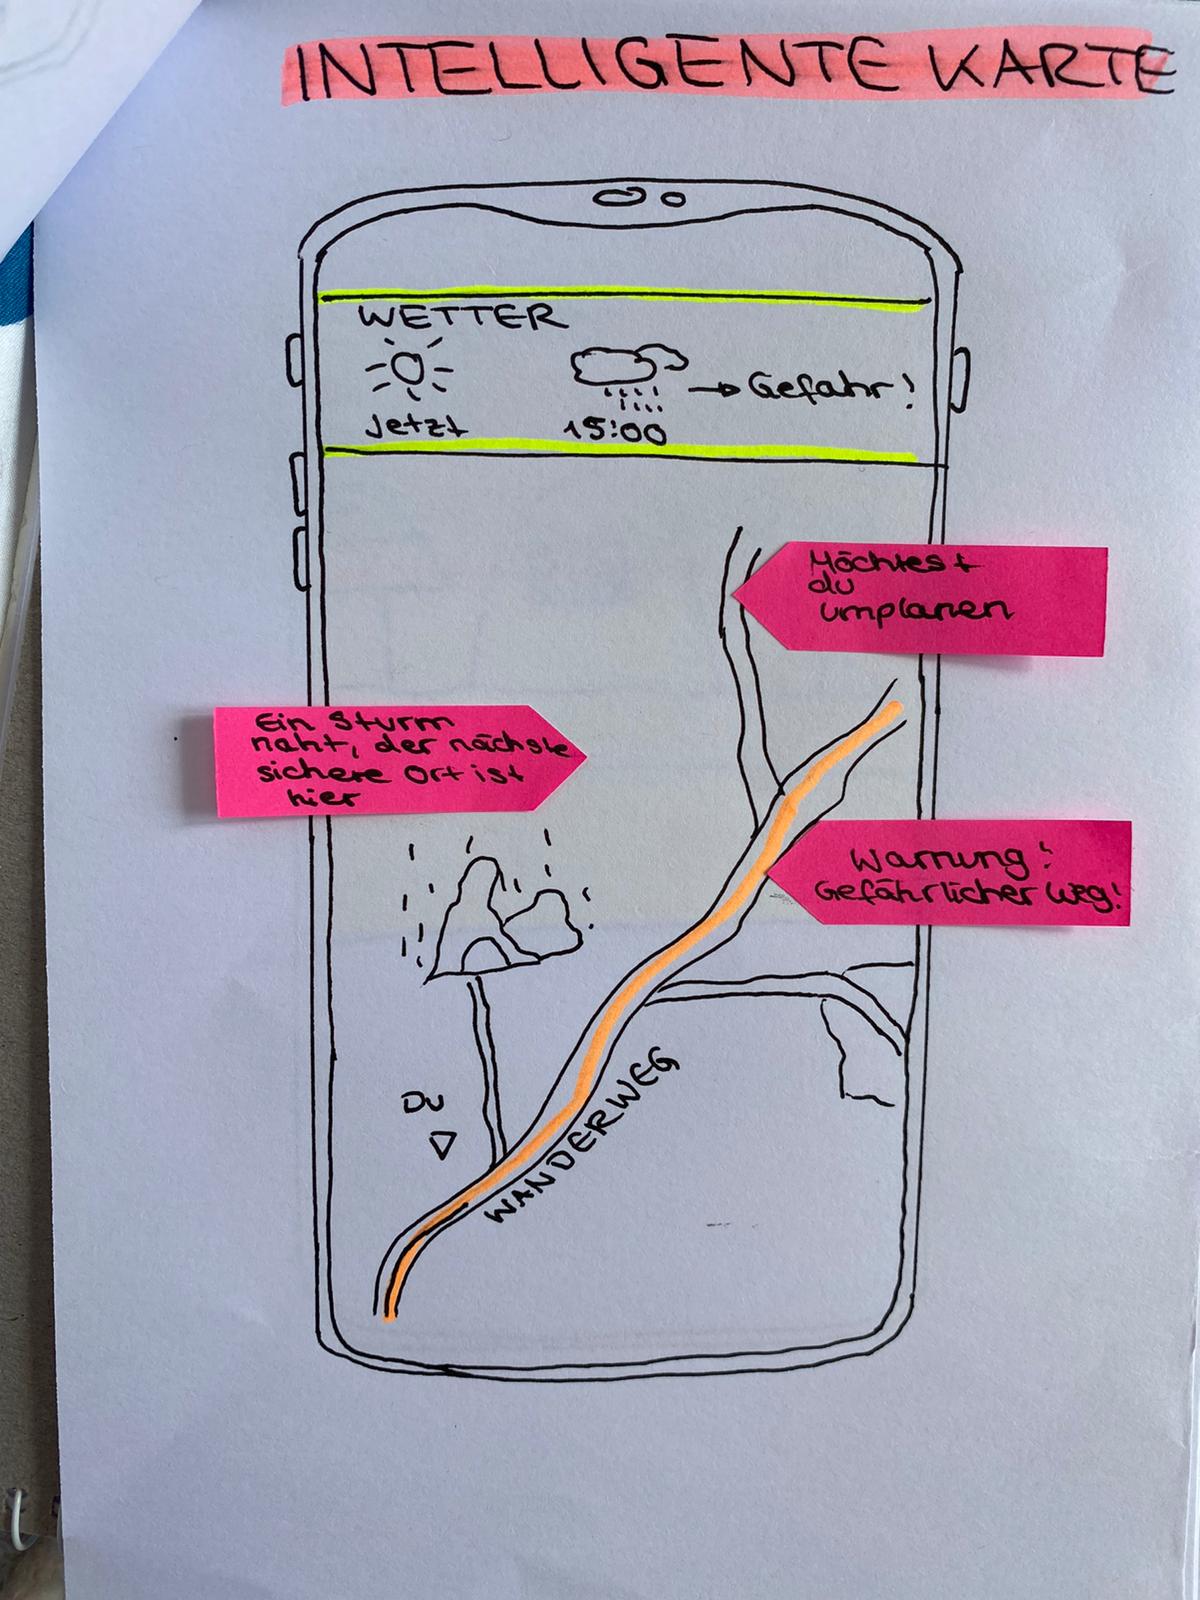 INTELLIGENTE KARTE
WETTER
→ Gefahr!
Jetzt
15:00
Möchtest
du
umplanen
Ein Sturm
naht, der nächste
sichere Ort ist
hier
Warnung!
Gefährlicher Weg!
Du
WANDERWEG